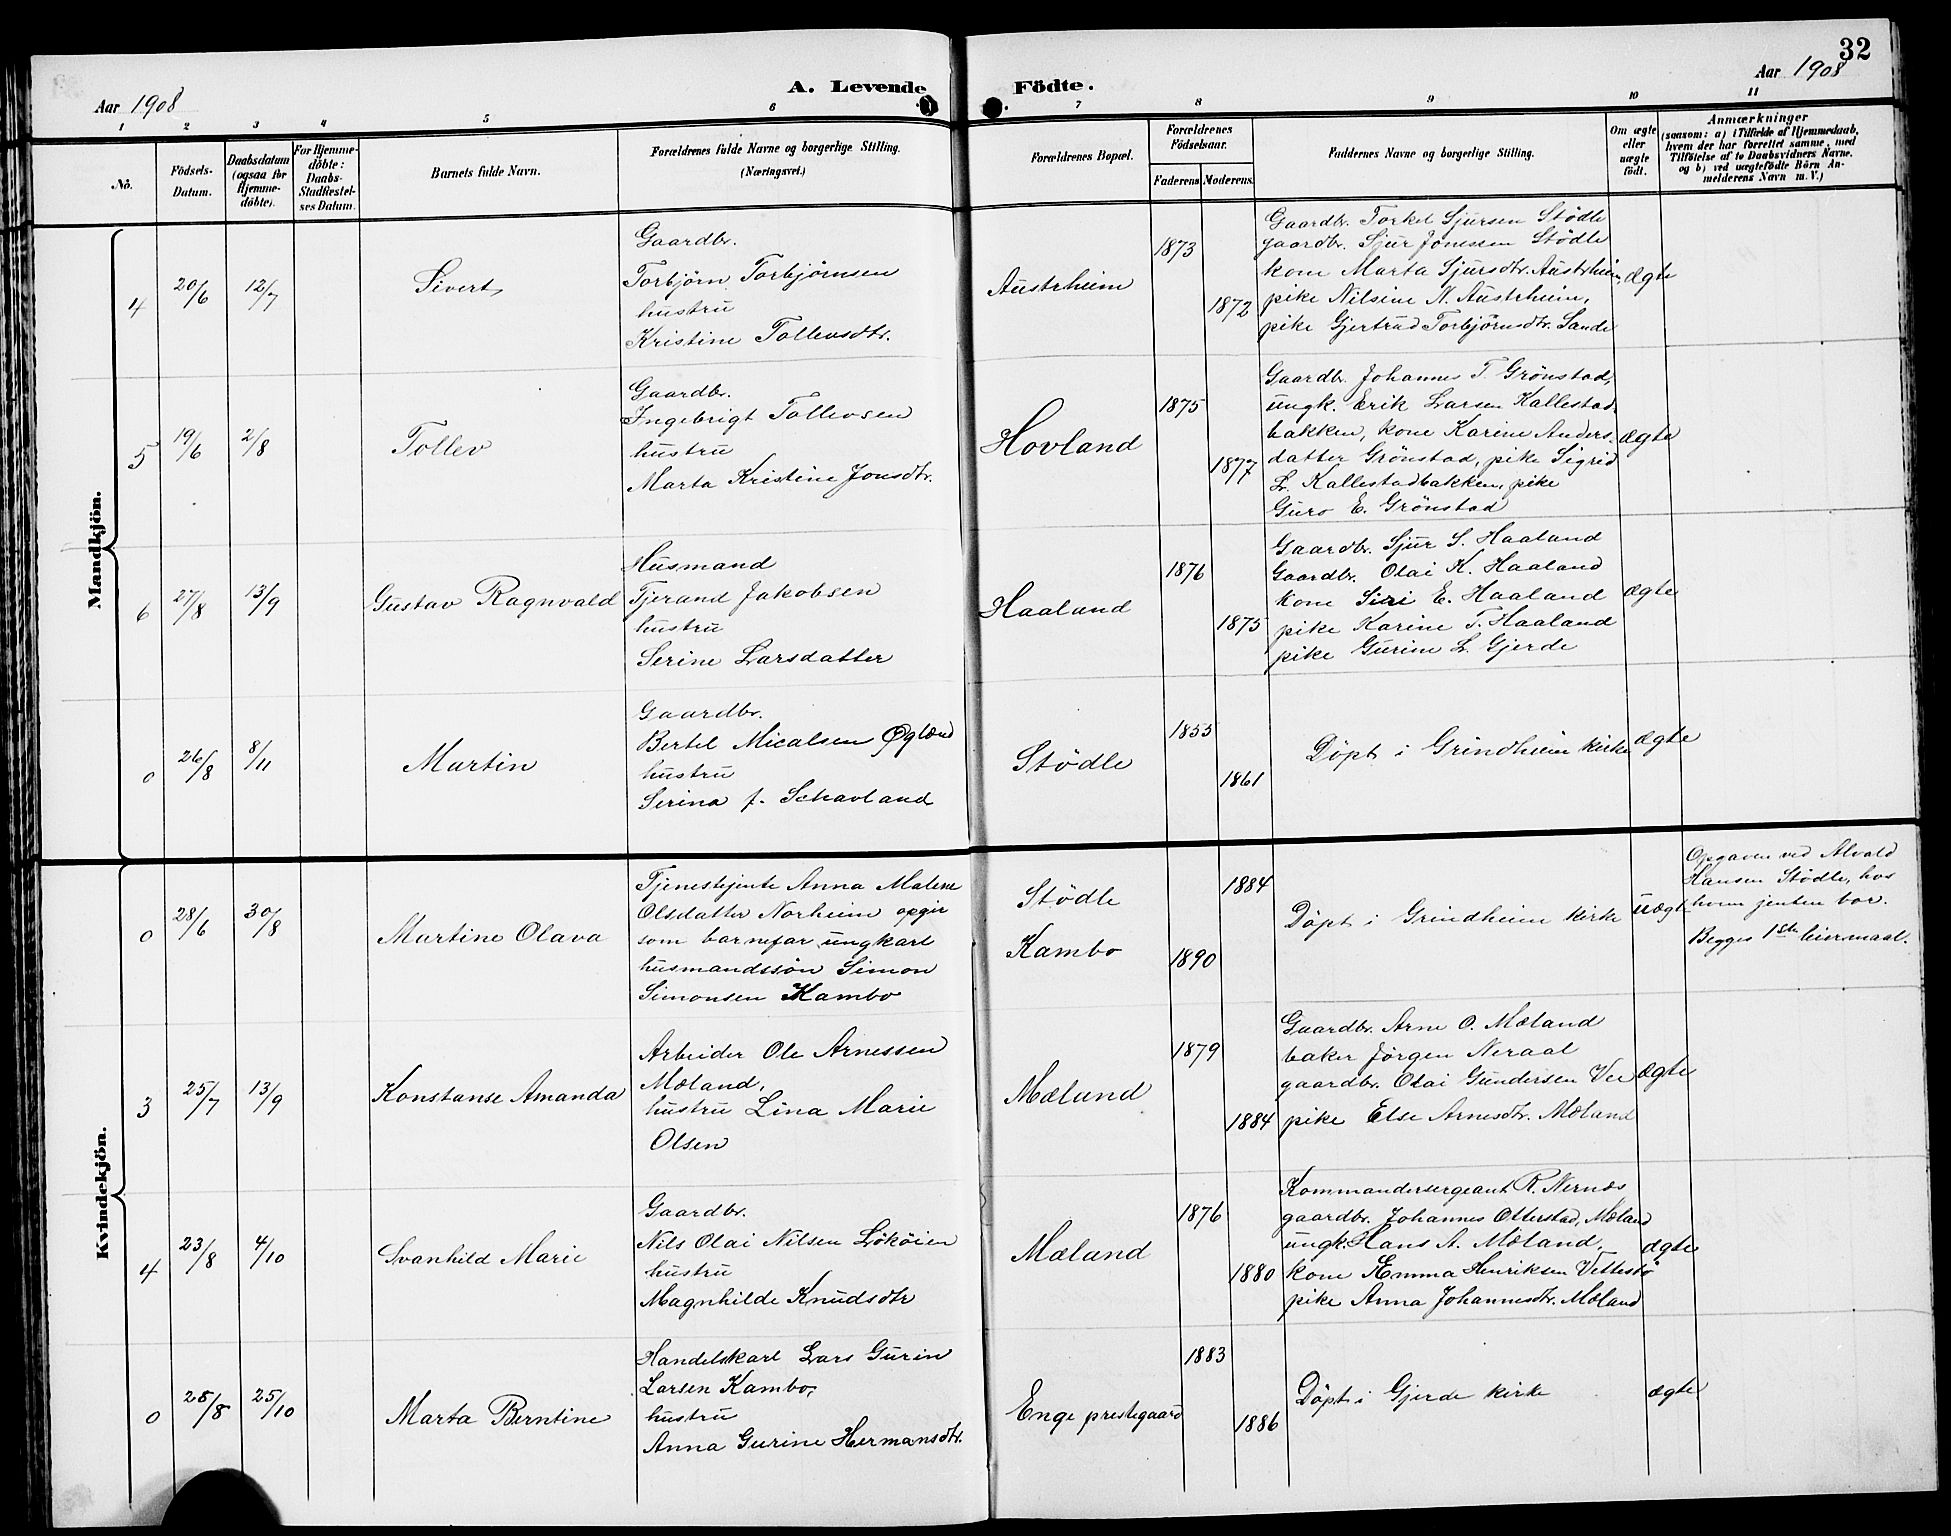 32
Aar 1908
A. Levende Födte.
Aar 1908
1 2 3 4 5 6 7 8 9 10 11
No.
Födsels-
Datum.
Daabsdatum
(ogsaa for
Hjemme-
döbte).
For Hjemme-
döbte:
Daabs-
Stadfæstel-
ses Datum.
Barnets fulde Navn.
Forældrenes fulde Navne og borgerlige Stilling.
(Næringsvei.)
Forældrenes Bopæl.
Forældrenes
Födselsaar.
Faderens Moderens.
Faddernes Navne og borgerlige Stilling.
Om ægte
eller
uægte
födt.
Anmærkninger
(saasom: a) i Tilfælde af Hjemmedaab,
hvem der har forrettet samme, med
Tilföielse af to Daabsvidners Navne.
og b) ved uægtefödte Börn An-
melderens Navn m. V.)
Mandkjön.
4 20/6 12/7 Sivert
Gaardbr.
Torbjörn Torbjörnsen
hustru
Kristine Tollevsdtr.
Austrheim
1873
1872
Gaardbr. Torkel Sjursen Stødle
gaardbr. Sjur Jonessen Stødle
kone Marta Sjursdtr. Austrheim,
pike Nilsine N. Austrheim,
pike Gjertrud Torbjörnsdtr. Sande
ægte
5 19/6 2/8 Tollev
Gaardbr.
Ingebrigt Tollevsen
hustru
Marta Kristine Jonsdtr.
Hovland
1875
1877
Gaardbr. Johannes T. Grönstad,
ungk. Erik Larsen Kallestad-
bakken, kone Karine Anders-
datter Grönstad, pike Sigrid
L. Kallestadbakken, pike
Guro E. Grönstad
ægte
6 27/8 13/9 Gustav Ragnvald
Husmand
Tjerand Jakobsen
hustru
Serine Larsdatter
Haaland
1876
1875
Gaardbr. Sjur S. Haaland
Gaardbr. Olai K. Haaland
kone Siri E. Haaland
pike Karine T. Haaland
pike Gurine L. Gjerde
ægte
0 26/8 8/11 Martin
Gaardbr.
Bertel Micalsen Øglænd
hustru
Serina f. Schavland
Stødle
1855
1861
Døpt i Grindheim kirke
ægte
Kvindekjön.
0 28/6 30/8 Martine Olava
Tjenestejente Anna Malene
Olsdatter Norheim opgir
som barnefar ungkarl
husmandssön Simon
Simonsen Kambo
Stødle
Kambo
1884
1890
Døpt i Grindheim kirke
uægte
Opgaven ved Alvald
Hansen Stødle, hos
hvem jenten bor.
Begges 1ste leiermaal.
3 25/7 13/9 Konstanse Amanda
Arbeider Ole Arnessen
Mæland,
hustru Lina Marie
Olsen
Mæland
1879
1884
Gaardbr. Arne O. Mæland
baker Jörgen Neraal
gaardbr. Olai Gundersen Vee
pike Else Arnesdtr. Mæland
ægte
4 23/8 4/10 Svanhild Marie
Gaardbr.
Nils Olai Nilsen Løkøien
hustru
Magnhilde Knudsdtr
Mæland
1876
1880
Kommandersergeant R. Nernæs
gaardbr. Johannes Otterstad, Mæland
ungk. Hans A. Mæland,
kone Emma Henriksen Vettestø
pike Anna Johannesdtr. Mæland
ægte
0 25/8 25/10 Marta Berntine
Handelskarl Lars Gurin
Larsen Kambo,
hustru
Anna Gurine Hermansdtr.
Enge prestegaard
1883
1886
Døpt i Gjerde kirke
ægte